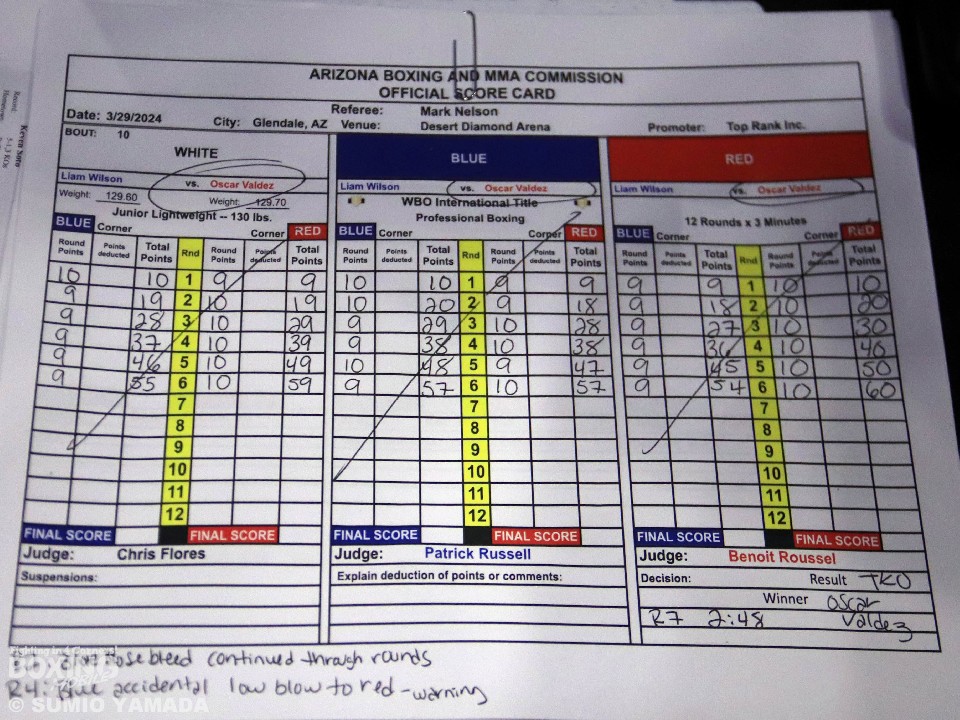 ARIZONA BOXING AND MMA COMMISSION
OFFICIAL SCORE CARD
Date: 3/29/2024 City: Glendale, AZ Referee: Mark Nelson
Venue: Desert Diamond Arena Promoter: Top Rank Inc.
BOUT: 10
WHITE
Liam Wilson vs. Oscar Valdez
Weight: 129.60 Weight: 129.70
Junior Lightweight -- 130 lbs.
BLUE Corner Corner RED
Round Points Points deducted Total Points Rnd Round Points Points deducted Total Points
10 10 1 9 9
9 19 2 10 19
9 28 3 10 29
9 37 4 10 39
9 46 5 10 49
9 55 6 10 59
7
8
9
10
11
12
FINAL SCORE FINAL SCORE
Judge: Chris Flores
Suspensions:
BLUE
Liam Wilson vs. Oscar Valdez
WBO International Title
Professional Boxing
BLUE Corner Corner RED
Round Points Points deducted Total Points Rnd Round Points Points deducted Total Points
10 10 1 9 9
10 20 2 9 18
9 29 3 10 28
9 38 4 10 38
10 48 5 9 47
9 57 6 10 57
7
8
9
10
11
12
FINAL SCORE FINAL SCORE
Judge: Patrick Russell
Explain deduction of points or comments:
RED
Liam Wilson vs. Oscar Valdez
12 Rounds x 3 Minutes
BLUE Corner Corner RED
Round Points Points deducted Total Points Rnd Round Points Points deducted Total Points
9 9 1 10 10
9 18 2 10 20
9 27 3 10 30
9 36 4 10 40
9 45 5 10 50
9 54 6 10 60
7
8
9
10
11
12
FINAL SCORE FINAL SCORE
Judge: Benoit Roussel
Decision: Result TKO
Winner Oscar Valdez
R7 2:48
nosebleed continued through rounds
R4: Blue accidental low blow to red - warning
BOXING
© SUMIO YAMADA